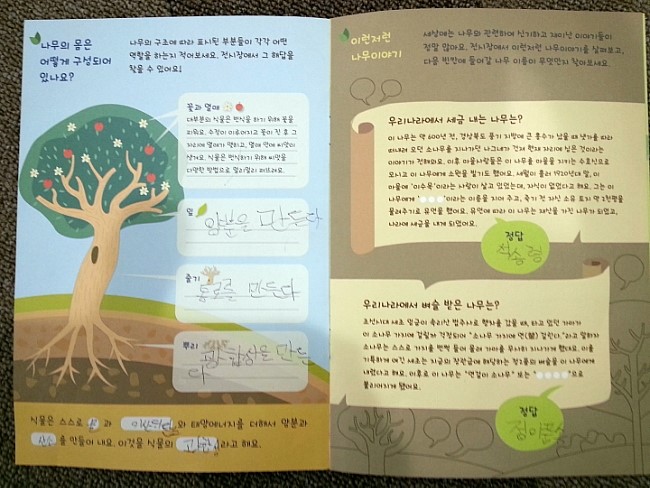 나무의 몸은
어떻게 구성되어
있나요?
나무의 구조에 따라 표시된 부분들이 각각 어떤
역할을 하는지 적어보세요. 전시장에서 그 해답을
찾을 수 있어요!
꽃과 열매
대부분의 식물은 번식을 하기 위해 꽃을
피워요. 수정이 이루어지고 꽃이 진 후 그
자리에 열매가 맺히고, 열매 안에 씨앗이
생겨요. 식물은 번식하기 위해 씨앗을
다양한 방법으로 멀리멀리 퍼뜨려요.
잎
양분을 만든다
줄기
통로를 만든다
뿌리
만든
다
식물은 스스로 물 과 이산화탄소 와 태양에너지를 더해서 양분과
산소 를 만들어 내요. 이것을 식물의 광합성 라고 해요.
이런저런
나무이야기
세상에는 나무와 관련하여 신기하고 재미난 이야기들이
정말 많아요. 전시장에서 이런저런 나무이야기를 살펴보고,
다음 빈칸에 들어갈 나무 이름이 무엇인지 찾아보세요.
우리나라에서 세금 내는 나무는?
이 나무는 약 600년 전, 경상북도 풍기 지방에 큰 홍수가 났을 때 냇가를 따라
떠내려 오던 소나무를 지나가던 나그네가 건져 현재 자리에 심은 것이라는
이야기가 전해와요. 이후 마을사람들은 이 나무를 마을을 지키는 수호신으로
모시고 이 나무에게 소원을 빌기도 했어요. 세월이 흘러 1920년대 말, 이
마을에 "이수목"이라는 사람이 살고 있었는데, 자식이 없었다고 해요. 그는 이
나무에게 "●●●"이라는 이름을 지어 주고, 죽기 전 자신 소유 토지 약 2천평을
물려주기로 유언을 했어요. 유언에 따라 이 나무는 재산을 가진 나무가 되었고,
나라에 세금을 내게 되었어요.
정답
석송령
우리나라에서 벼슬 받은 나무는?
조선시대 세조 임금이 속리산 법주사로 행차를 갔을 때, 타고 있던 가마가
이 소나무 가지에 걸릴까 걱정되어 "소나무 가지에 연(輦) 걸린다."라고 말하자
소나무는 스스로 가지를 번쩍 들어 올려 가마를 무사히 지나가게 했대요. 이를
기특하게 여긴 세조는 지금의 장관급에 해당하는 정2품의 벼슬을 이 나무에게
내렸다고 해요. 이후로 이 나무는 "연걸이 소나무" 또는 "●●●●"으로
불리어지게 됐어요.
정답